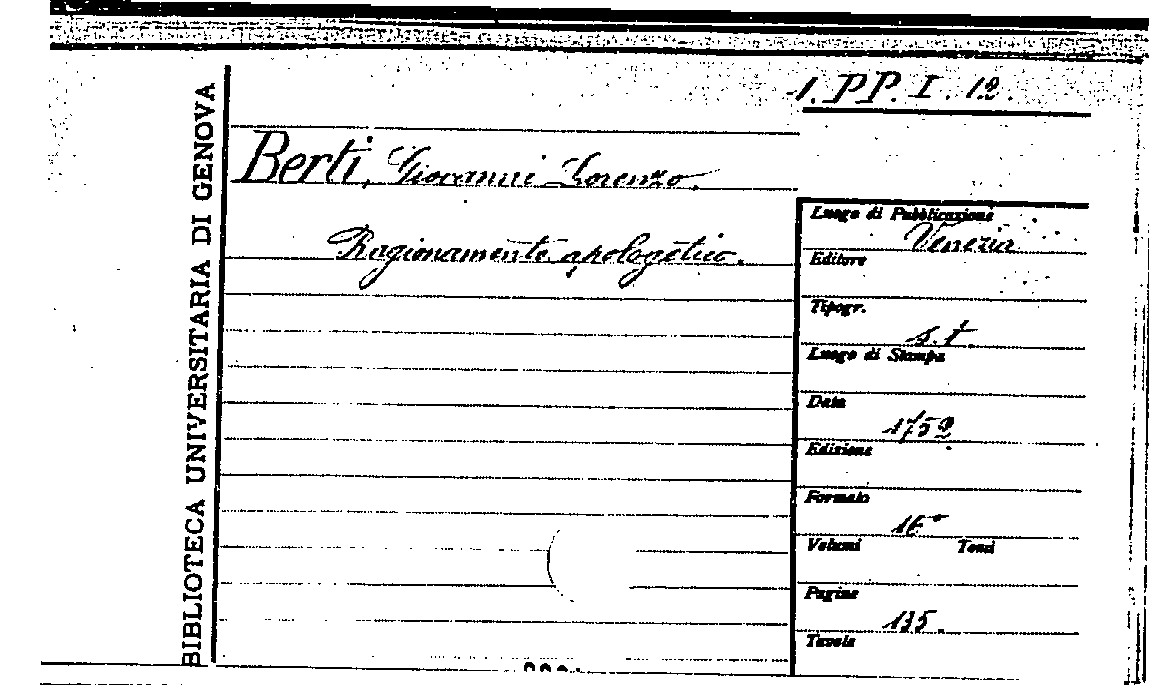 1. PP. I. 12.
BIBLIOTECA UNIVERSITARIA DI GENOVA
Berti, Giovanni Lorenzo.
Ragionamento apologetico.
Luogo di Pubblicazione
Venezia
Editore
Tipogr.
s. t.
Luogo di Stampa
Data
1752
Edizione
Formato
16°
Volumi Tomi
Pagine
135.
Tavole